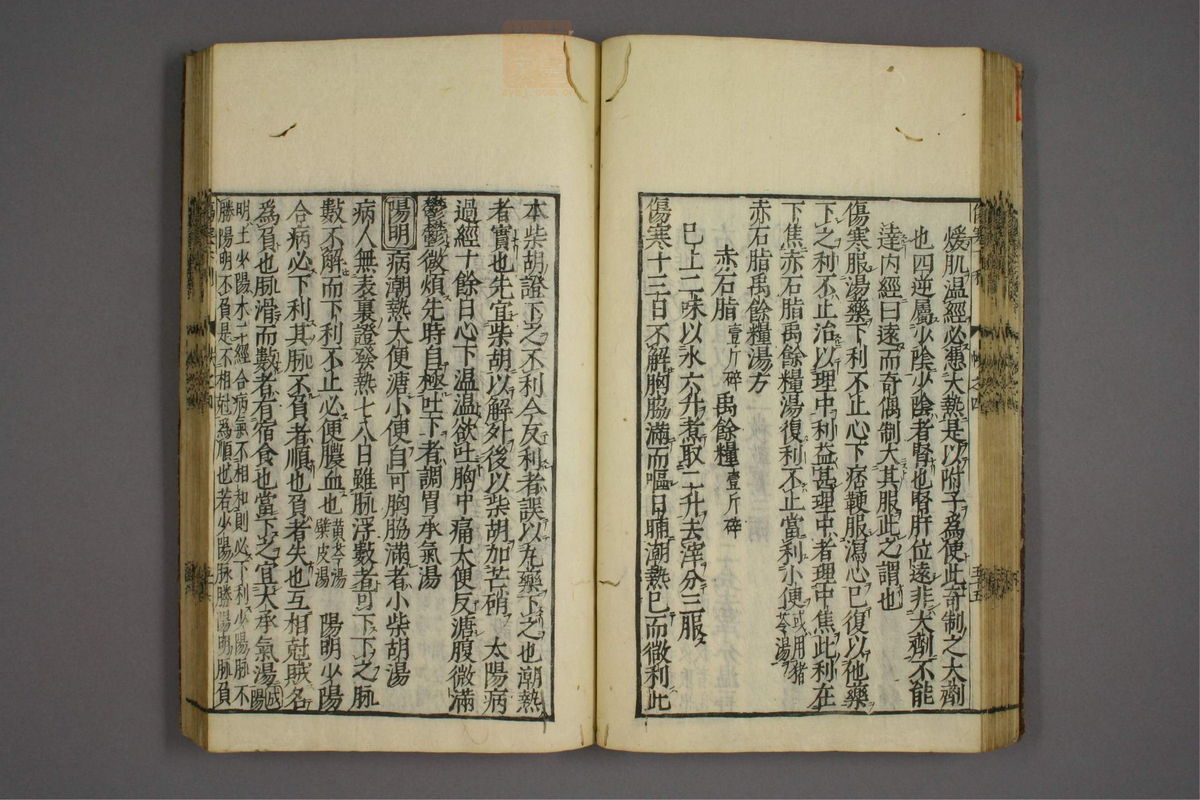 煖肌温經必憑大熱是以附子爲使此奇制之大劑
也四逆屬少陰少陰者腎也腎肝位遠非大劑不能
達内經曰遠而奇偶制大其服此之謂也
傷寒服湯藥下利不止心下痞鞕服瀉心已復以他藥
下之利不止治以理中利益甚理中者理中焦此利在
下焦赤石脂禹餘糧湯復利不止當利小便或用猪苓湯
赤石脂禹餘糧湯方
赤石脂壹斤碎禹餘糧壹斤碎
已上二味以水六升煮取二升去滓分三服
傷寒十三日不解胸脇滿而嘔日晡潮熱已而微利此
本柴胡證下之不利今反利者誤以丸藥下之也潮熱
者實也先宜柴胡以解外後以柴胡加芒硝 太陽病
過經十餘日心下温温欲吐胸中痛大便反溏腹微滿
鬱鬱微煩先時自極吐下者調胃承氣湯
陽明 病潮熱大便溏小便自可胸脇滿者小柴胡湯
病人無表裏證發熱七八日雖脉浮數者可下下之脉
數不解而下利不止必便膿血也黄芩湯蘗皮湯 陽明少陽
合病必下利其脉不負者順也負者失也互相尅賊名
爲負也脉滑而數者有宿食也當下之宜大承氣湯成陽
明土少陽木二經合病氣不相和則必下利少陽脉不
勝陽明不負是不相尅爲順也若少陽脉勝陽明脉負